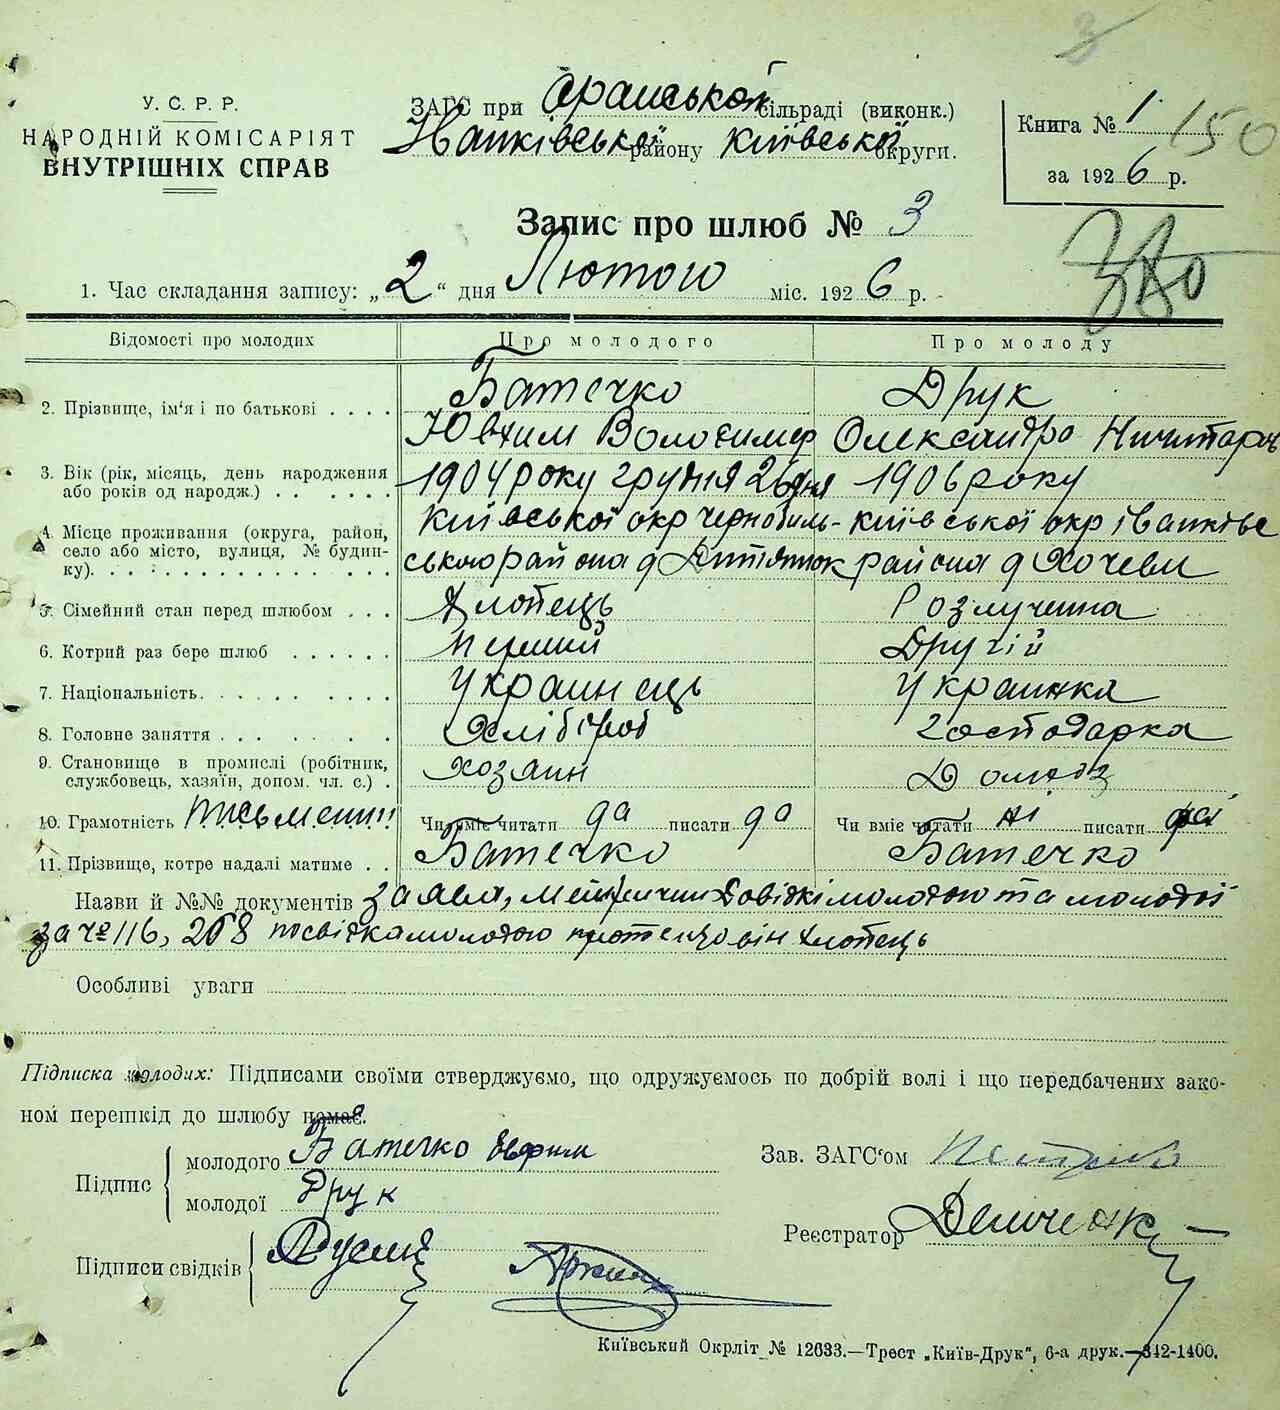 У. С. Р. Р.
НАРОДНІЙ КОМІСАРІЯТ
ВНУТРІШНІХ СПРАВ
ЗАГС при сільраді (виконк.)
району Київської округи.
Книга № 1 150
за 1926 р.
Запис про шлюб № 3
1. Час складання запису: „2“ дня Лютого міс. 1926 р.
Відомості про молодих Про молодого Про молоду
2. Прізвище, ім‘я і по батькові . . . . Батечко Друк
Ювхим Володимер Олександра
3. Вік (рік, місяць, день народження або років од народж.) . . . . . . 1904 року грудня 26 дня 1906 року
4. Місце проживання (округа, район, село або місто, вулиця, № будинку). . . . . . . . . . . . . . Київської окр Чернобиль- Київської окр Іванківс
ського района д района д Кочеви
5. Сімейний стан перед шлюбом . . . Хлопець Розлученна
6. Котрий раз бере шлюб . . . . . . перший Другій
7. Національність. . . . . . . . . Украинець Украинка
8. Головне заняття . . . . . . . Хлібороб Господарка
9. Становище в промислі (робітник, службовець, хазяїн, допом. чл. с.) . хозяин
10. Грамотність Чи вміє читати да писати да Чи вміє читати ні писати
11. Прізвище, котре надалі матиме . . Батечко Батечко
Назви й №№ документів заяви, довідкі молодого та молодої
за № 116, 268 посвідка молодого що він хлопець
Особливі уваги
Підписка молодих: Підписами своїми стверджуємо, що одружуємось по добрій волі і що передбачених зако-
ном перешкід до шлюбу немає.
Підпис молодого Батечко Евфим
молодої Друк
Зав. ЗАГС‘ом
Реєстратор
Підписи свідків
Київський Окрліт № 12633.—Трест „Київ-Друк“, 6-а друк.—342-1400.